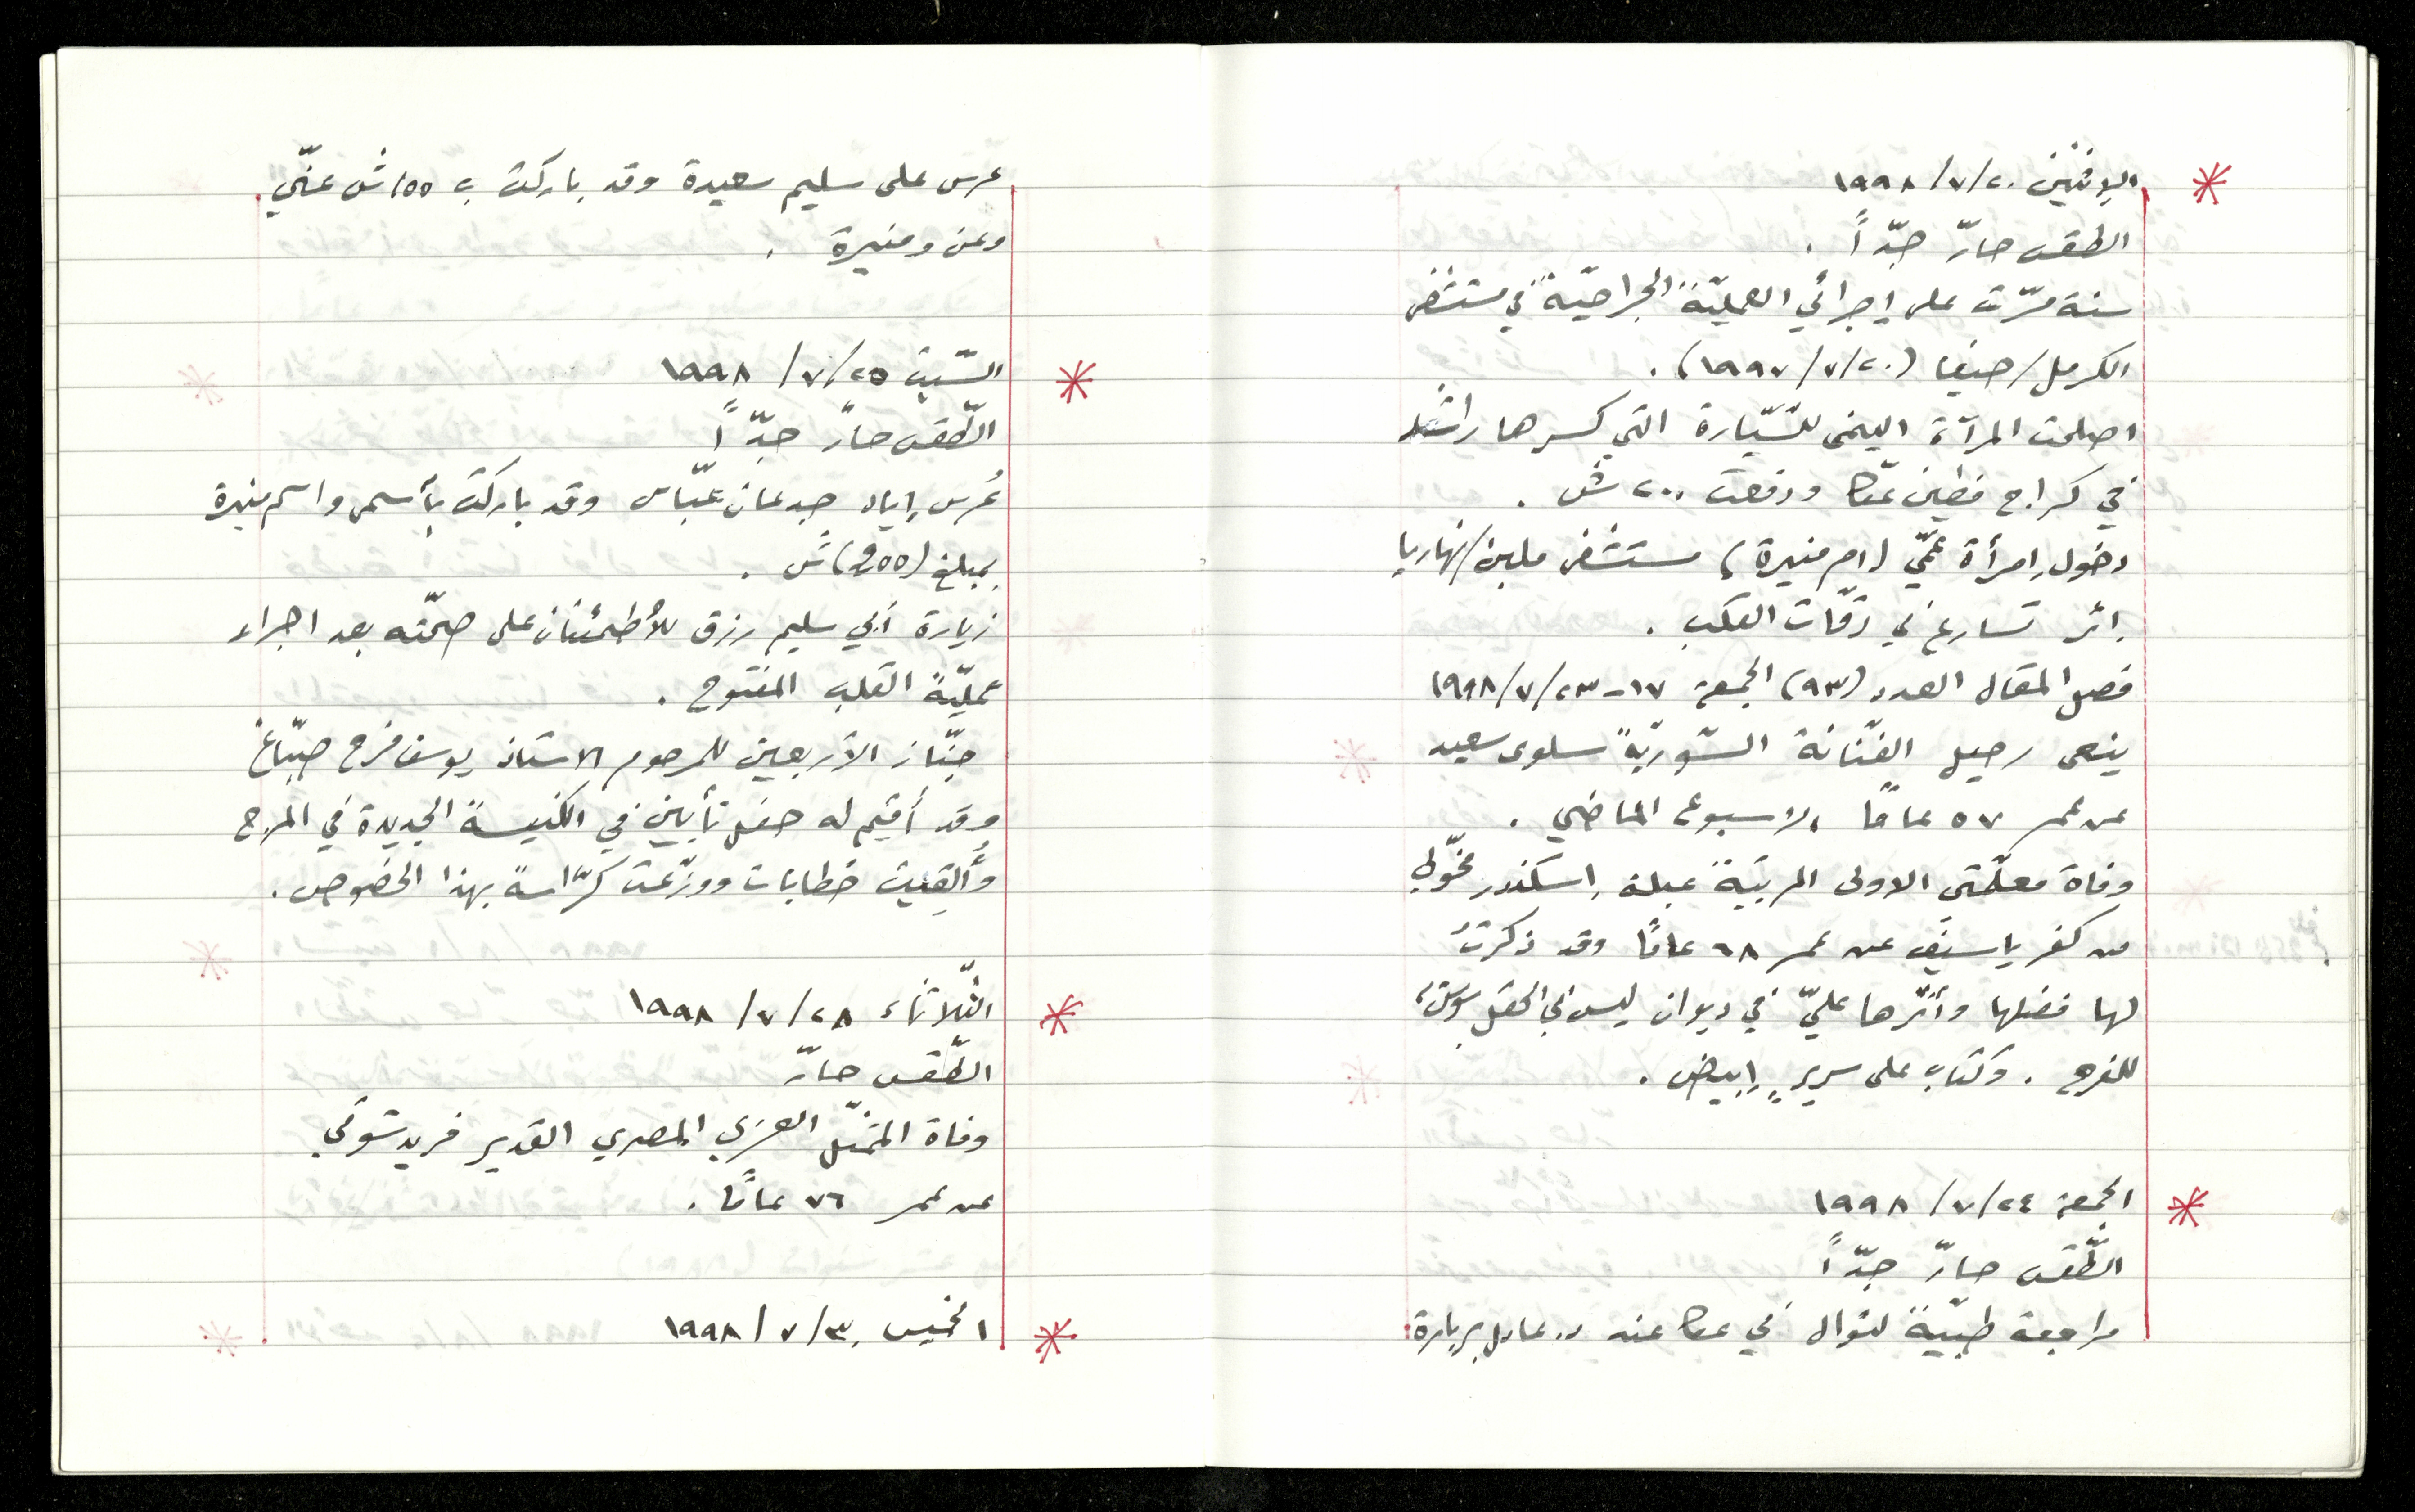 الإثنين ٢٠/٧/١٩٩٨
الطقس حارّ جدّاً .
سنة مرّت على إجرائي العمليّة الجراحيّة في مستشفى
الكرمل/حيفا (٢٠/٧/١٩٩٧) .
اصلحت المرآة اليمنى للسّيّارة التي كسرها راشد
في كراج فطين عكّا ودفعت ٢٠٠ ش .
دخول إمرأة عمّي (ام منيرة) مستشفى نهاريا
إثر تسارع في دقّات القلب .
فصل المقال العدد (٩٣) الجمعة ١٧-٢٣/٧/١٩٩٨
ينعى رحيل الفنّانة السّوريّة سلوى سعيد
عن عمر ٥٧ عامًا الاسبوع الماضي .
وفاة معلّمتي الاولى المربّية عبلة إسكندر مخّولي
من كفر ياسيف عن عمر ٦٨ عامًا وقد ذكرتُ
لها فضلها وأثرها عليّ في ديوان ليس في الحقل
للفرح . وكتاب على سريرٍ إبيض .
الجمعة ٢٤/٧/١٩٩٨
الطّقس حارّ جدّاً
مراجعة طبّيّة لنوال في عكا عند د. عادل بربارة
عرس علي سليم سعيدة وقد باركت ب ١٥٥ ش عنّي
وعن ومنيرة .
السّبت ٢٥/٧/١٩٩٨
الطّقس حارّ جدّاً
عُرس إياد جدعان عبّاس وقد باركت بأسمي واسم منيرة
بمبلغ ش .
زيارة أبي سليم رزق للأطمئنان على صحّته بعد اجراء
عمليّة القلب المفتوح .
جنّاز الأربعين للمرحوم الاستاذ يوسف فرح صبّاغ
وقد أُقيم له حفل تأبين في الكنيسة الجديدة في المرج
وأُلقيت خطابات ووزّعت كرّاسة بهذا الخصوص .
الثّلاثاء ٢٨/٧/١٩٩٨
الطّقس حارّ
وفاة الممثّل العربي المصري القدير فريد شوقي
عن عمر ٧٦ عامًا .
الخميس ٣٠/٧/١٩٩٨